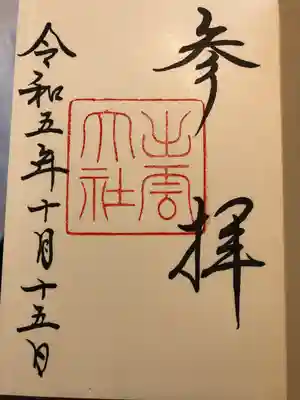 参拝
出雲
大社
令和五年十月十五日